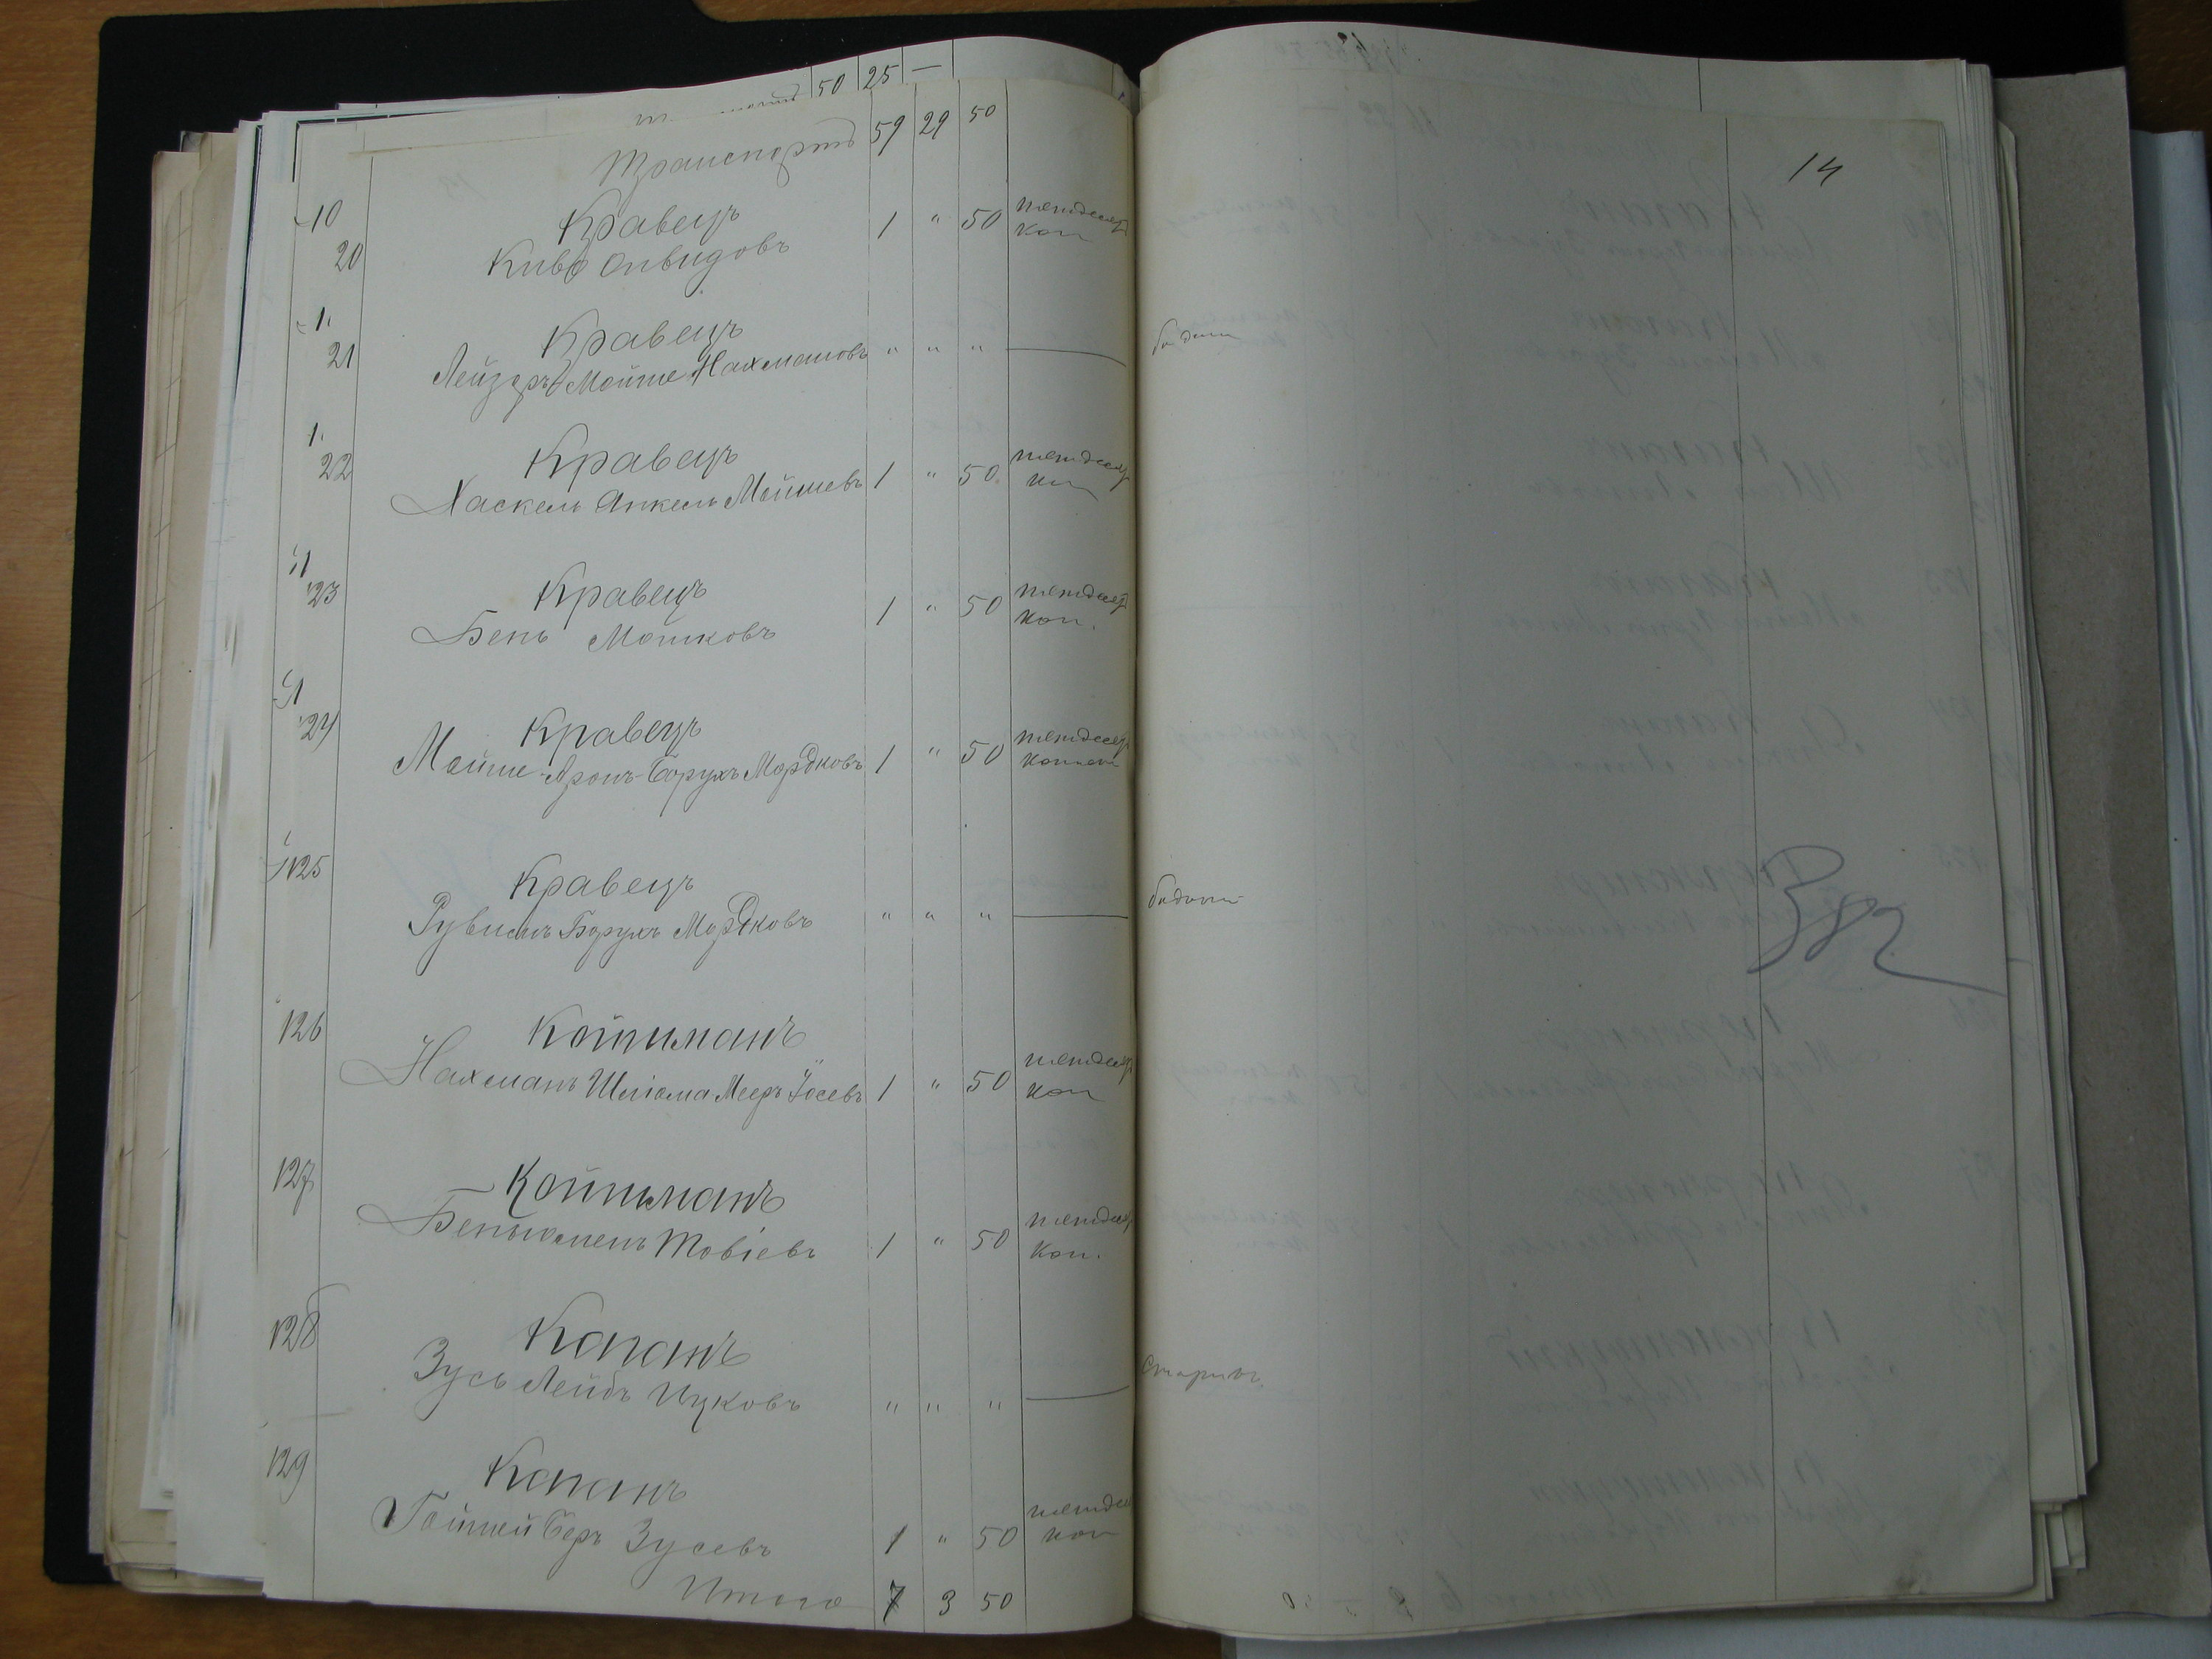 50 25 —
Транспортъ 59 29 50
20 Кравецъ 1 " 50 пятдесят
коп
21 Кравецъ
Лейзеръ Мойше Нахмановъ " " " — бедный
22 Кравецъ
Хаскель Анкель Мойшевъ 1 " 50 пятдесят
коп
123 Кравецъ
Бень Мошковъ 1 " 50 пятдесят
коп.
124 Кравецъ
Мойше-Аронъ-Борухъ Мордковъ 1 " 50 пятдесят
копеек
125 Кравецъ
Рувинъ Борухъ Мордковъ " " " — бедный
126 Койшманъ
Нахманъ Шліома Мееръ Іосевъ 1 " 50 пятдесят
коп
127 Койшманъ
Беньюменъ Товіевъ 1 " 50 пятдесят
коп.
128 Каганъ
Зусь Лейбъ Ицковъ " " " — старикъ
129 Каганъ
Беръ Зусевъ 1 " 50 пятдес
коп
Итого 7 3 50
14
382